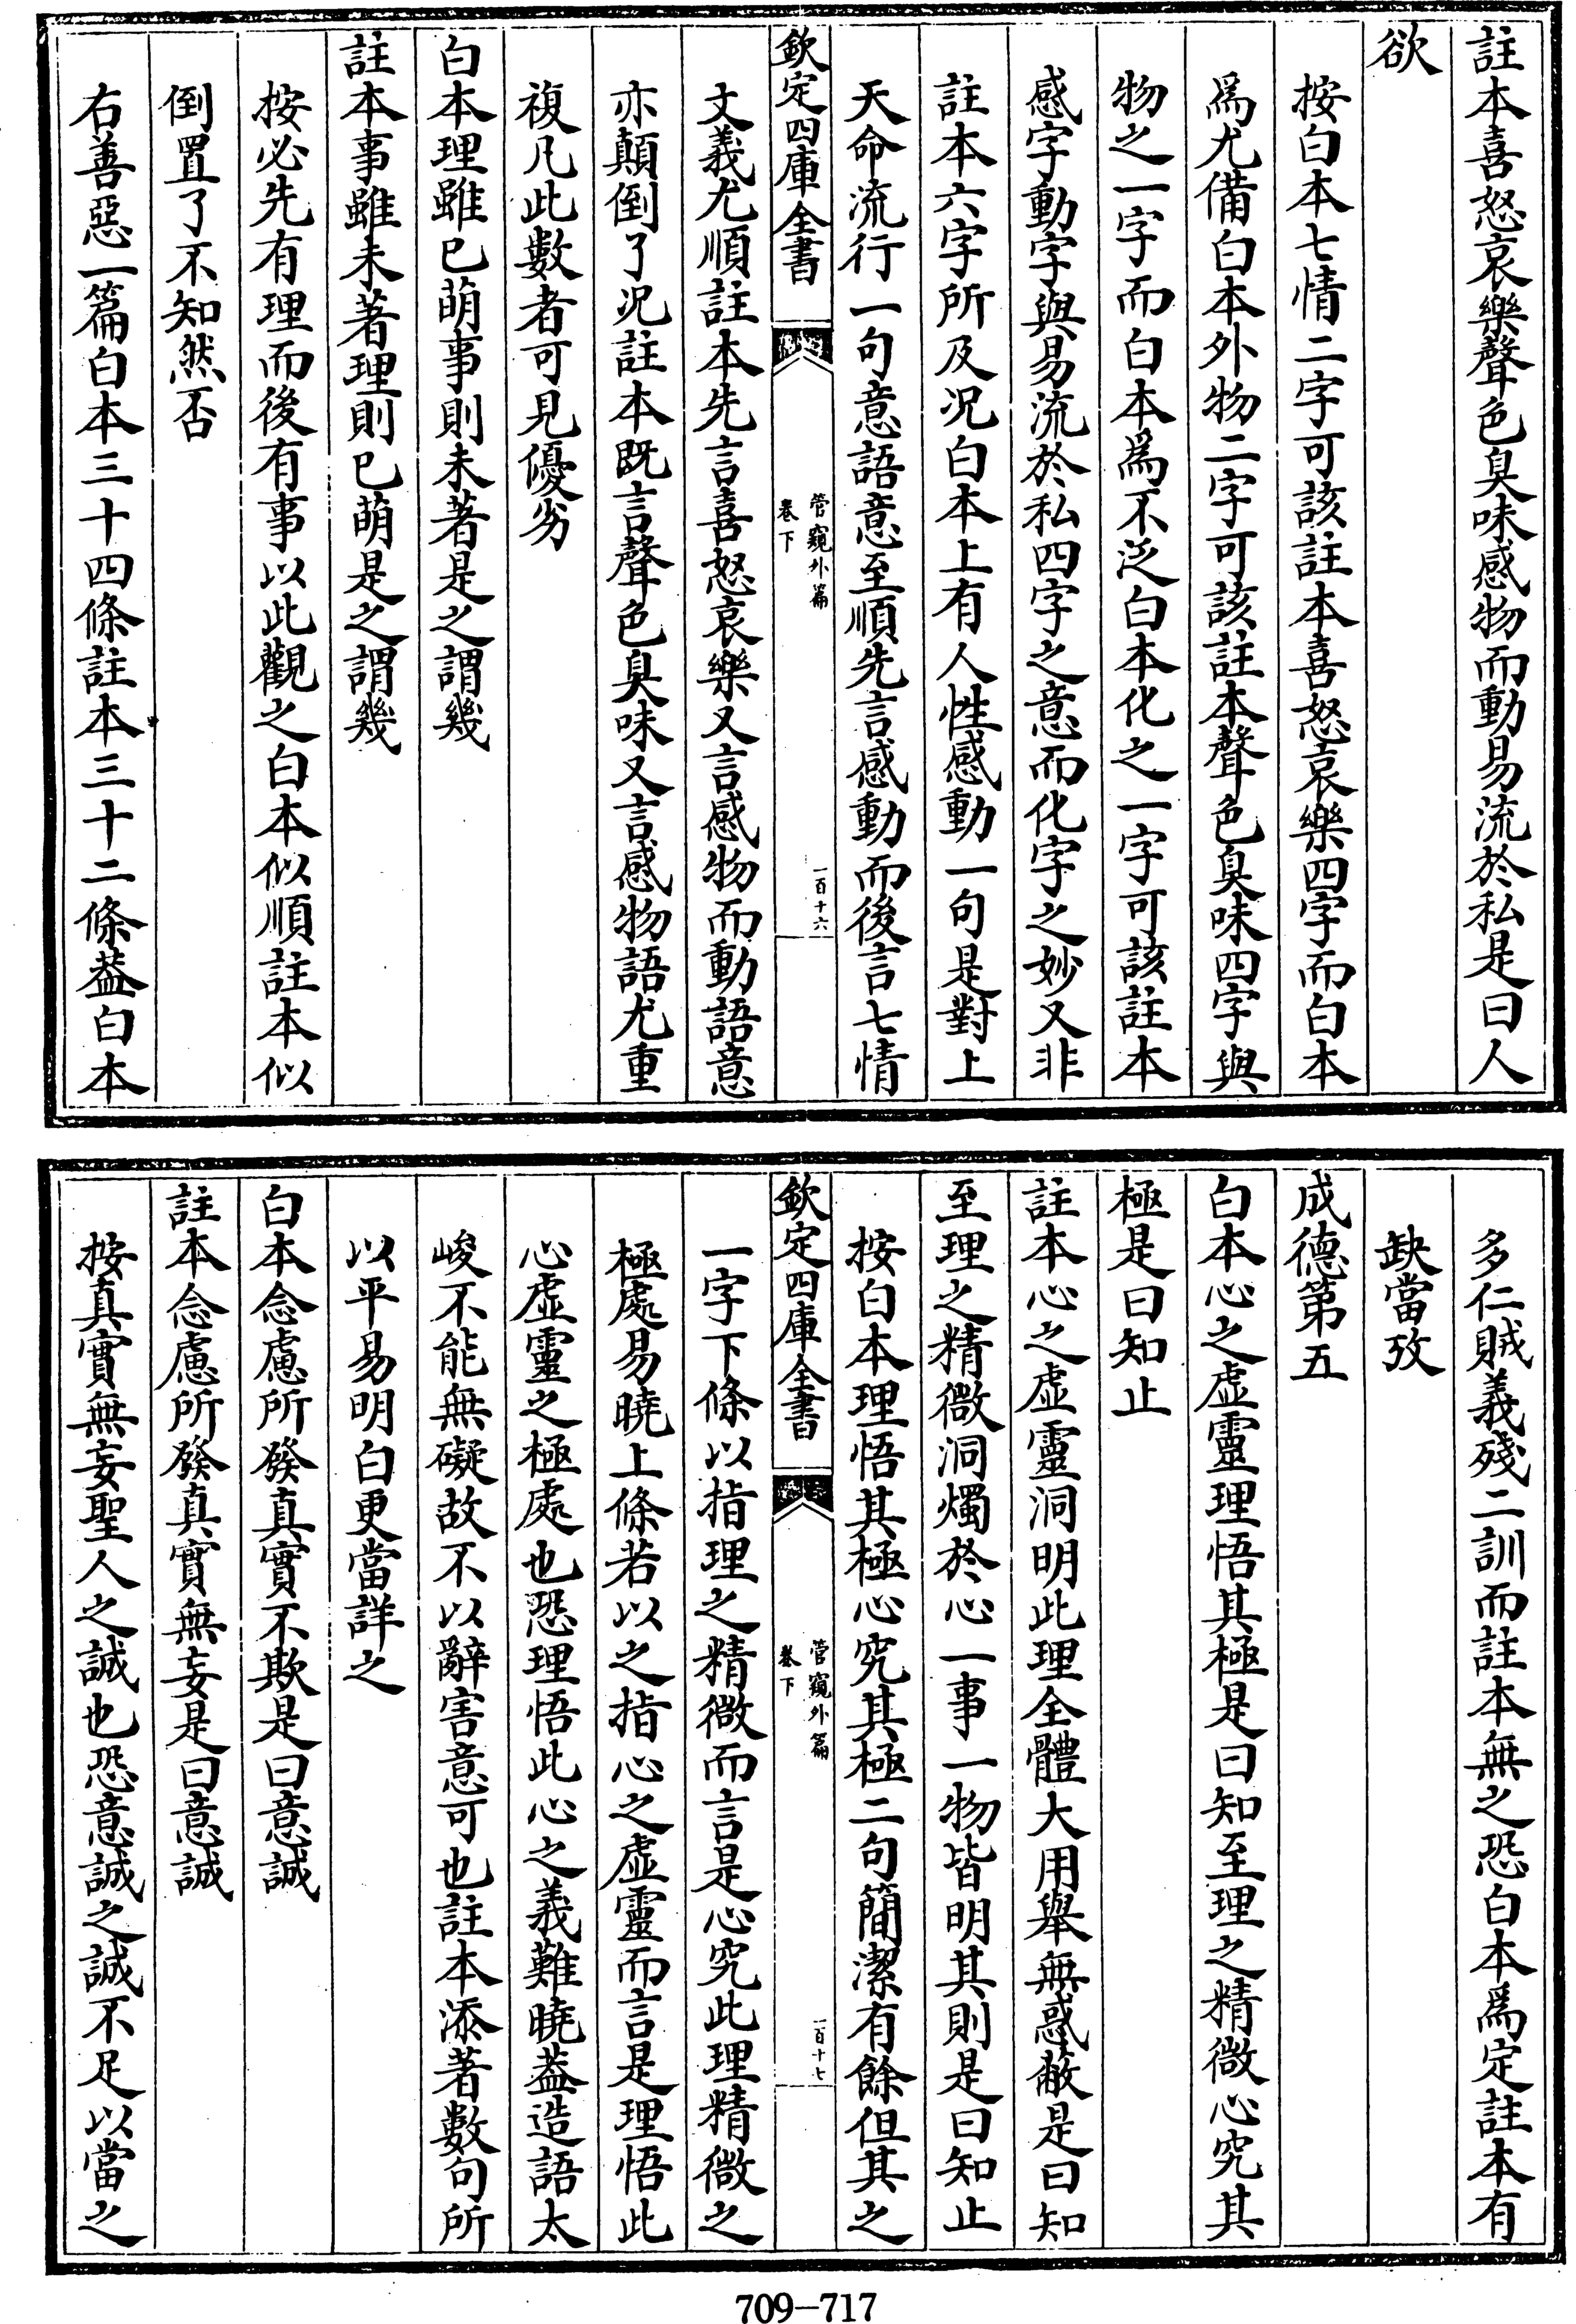 註本喜怒哀樂聲色臭味感物而動易流於私是曰人
欲
按白本七情二字可該註本喜怒哀樂四字而白本
爲尤備白本外物二字可該註本聲色臭味四字與
物之一字而白本爲不泛白本化之一字可該註本
感字動字與易流於私四字之意而化字之妙又非
註本六字所及况白本上有人性感動一句是對上
天命流行一句意語意至順先言感動而後言七情
欽定四庫全書
管窺外篇
卷下
一百十六
文義尤順註本先言喜怒哀樂又言感物而動語意
亦顛倒了况註本既言聲色臭味又言感物語尤重
複凡此數者可見優劣
白本理雖已萌事則未著是之謂幾
註本事雖未著理則已萌是之謂幾
按必先有理而後有事以此觀之白本似順註本似
倒置了不知然否
右善惡一篇白本三十四條註本三十二條葢白本
多仁賊義殘二訓而註本無之恐白本爲定註本有
缺當攷
成德第五
白本心之虛靈理悟其極是曰知至理之精微心究其
極是曰知止
註本心之虛靈洞明此理全體大用舉無惑蔽是曰知
至理之精微洞燭於心一事一物皆明其則是曰知止
按白本理悟其極心究其極二句簡潔有餘但其之
欽定四庫全書
管窺外篇
卷下
一百十七
一字下條以指理之精微而言是心究此理精微之
極處易曉上條若以之指心之虛靈而言是理悟此
心虛靈之極處也恐理悟此心之義難曉葢造語太
峻不能無礙故不以辭害意可也註本添著數句所
以平易明白更當詳之
白本念慮所發真實不欺是曰意誠
註本念慮所發真實無妄是曰意誠
按真實無妄聖人之誠也恐意誠之誠不足以當之
709-717